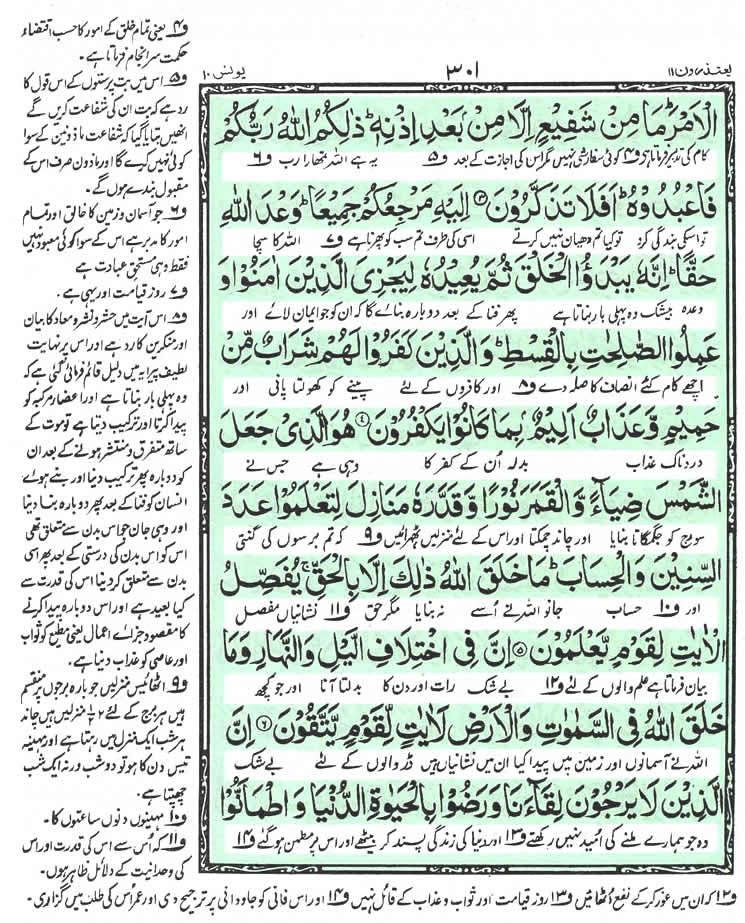 یعتذرون ۱۱
۳۰۱
یونس ۱۰
الْاَمْرَ ؕ مَا مِنْ شَفِیْعٍ اِلَّا مِنْۢ بَعْدِ اِذْنِهٖ ؕ ذٰلِكُمُ اللّٰهُ رَبُّكُمْ
کام کی تدبیر فرماتا ہے ف۴ کوئی سفارشی نہیں مگر اس کی اجازت کے بعد ف۵ یہ ہے اللہ تمھارا رب ف۶
فَاعْبُدُوْهُ ؕ اَفَلَا تَذَكَّرُوْنَ ۳ اِلَیْهِ مَرْجِعُكُمْ جَمِیْعًا ؕ وَعْدَ اللّٰهِ
تو اسکی بندگی کرو تو کیا تم دھیان نہیں کرتے اسی کی طرف تم سب کو پھرنا ہے ف۷ اللہ کا سچا
حَقًّا ؕ اِنَّهٗ یَبْدَؤُا الْخَلْقَ ثُمَّ یُعِیْدُهٗ لِیَجْزِیَ الَّذِیْنَ اٰمَنُوْا وَ
وعدہ بیشک وہ پہلی بار بناتا ہے پھر فنا کے بعد دوبارہ بنائے گا کہ ان کو جو ایمان لائے اور
عَمِلُوا الصّٰلِحٰتِ بِالْقِسْطِ ؕ وَالَّذِیْنَ كَفَرُوْا لَهُمْ شَرَابٌ مِّنْ
اچھے کام کئے انصاف کا صلہ دے ف۸ اور کافروں کے لئے پینے کو کھولتا پانی اور
حَمِیْمٍ وَّ عَذَابٌ اَلِیْمٌۢ بِمَا كَانُوْا یَكْفُرُوْنَ ۴ هُوَ الَّذِیْ جَعَلَ
دردناک عذاب بدلہ اُن کے کفر کا وہی ہے جس نے
الشَّمْسَ ضِیَآءً وَّ الْقَمَرَ نُوْرًا وَّ قَدَّرَهٗ مَنَازِلَ لِتَعْلَمُوْا عَدَدَ
سورج کو جگمگاتا بنایا اور چاند چمکتا اور اس کے لئے منزلیں ٹھہرائیں ف۹ کہ تم برسوں کی گنتی
السِّنِیْنَ وَالْحِسَابَ ؕ مَا خَلَقَ اللّٰهُ ذٰلِكَ اِلَّا بِالْحَقِّ ۚ یُفَصِّلُ
اور ف۱۰ حساب جانو اللہ نے اُسے نہ بنایا مگر حق ف۱۱ نشانیاں مفصل
الْاٰیٰتِ لِقَوْمٍ یَّعْلَمُوْنَ ۵ اِنَّ فِی اخْتِلَافِ الَّیْلِ وَالنَّهَارِ وَمَا
بیان فرماتا ہے علم والوں کے لئے ف۱۲ بے شک رات اور دن کا بدلتا آنا اور جو کچھ
خَلَقَ اللّٰهُ فِی السَّمٰوٰتِ وَالْاَرْضِ لَاٰیٰتٍ لِّقَوْمٍ یَّتَّقُوْنَ ۶ اِنَّ
اللہ نے آسمانوں اور زمین میں پیدا کیا ان میں نشانیاں ہیں ڈر والوں کے لئے بے شک
الَّذِیْنَ لَا یَرْجُوْنَ لِقَآءَنَا وَرَضُوْا بِالْحَیٰوةِ الدُّنْیَا وَ اطْمَاَنُّوْا
وہ جو ہمارے ملنے کی اُمید نہیں رکھتے ف۱۳ اور دنیا کی زندگی پسند کر بیٹھے اور اس پر مطمئن ہو گئے ف۱۴
ف۴ یعنی تمام خلق کے امور کا حسب اقتضاء
حکمت سرانجام فرماتا ہے۔
ف۵ اس میں بت پرستوں کے اس قول کا
رد ہے کہ بت ان کی شفاعت کریں گے
انھیں بتایا گیا کہ شفاعت ماذونین کے سوا
کوئی نہیں کرے گا اور ماذون صرف اس کے
مقبول بندے ہوں گے۔
ف۶ جو آسمان و زمین کا خالق اور تمام
امور کا مدبر ہے اس کے سوا کوئی معبود نہیں
فقط وہی مستحق عبادت ہے
ف۷ روز قیامت اور یہی ہے۔
ف۸ اس آیت میں حشر و نشر و معاد کا بیان
اور منکرین کا رد ہے اور اس پر نہایت
لطیف پیرایہ میں دلیل قائم فرمائی گئی ہے کہ
وہ پہلی بار بناتا ہے اور اعضاء مرکبہ کو
پیدا کرتا اور ترکیب دیتا ہے تو موت کے
ساتھ متفرق و منتشر ہونے کے بعد ان
کو دوبارہ پھر ترکیب دینا اور بنے ہوئے
انسان کو فنا کے بعد پھر دوبارہ بنا دینا
اور وہی جان جو اس بدن سے متعلق تھی
اس کو اس بدن کی درستی کے بعد پھر اسی
بدن سے متعلق کر دینا اس کی قدرت سے
کیا بعید ہے اور اس دوبارہ پیدا کرنے
کا مقصود جزائے اعمال یعنی مطیع کو ثواب
اور عاصی کو عذاب دینا ہے۔
ف۹ اٹھائیس منزلیں جو بارہ برجوں پر منقسم
ہیں ہر برج کے لئے ۲ ۱/۳ منزلیں ہیں چاند
ہر شب ایک منزل میں رہتا ہے اور مہینہ
تیس دن کا ہو تو دو شب ورنہ ایک شب
چھپتا ہے۔
ف۱۰ مہینوں دنوں ساعتوں کا۔
ف۱۱ کہ اُس سے اس کی قدرت اور اس
کی وحدانیت کے دلائل ظاہر ہوں۔
ف۱۲ کہ ان میں غور کر کے نفع اُٹھائیں ف۱۳ روز قیامت اور ثواب و عذاب کے قائل نہیں ف۱۴ اور اس فانی کو جاودانی پر ترجیح دی اور عمر اُس کی طلب میں گزاری۔